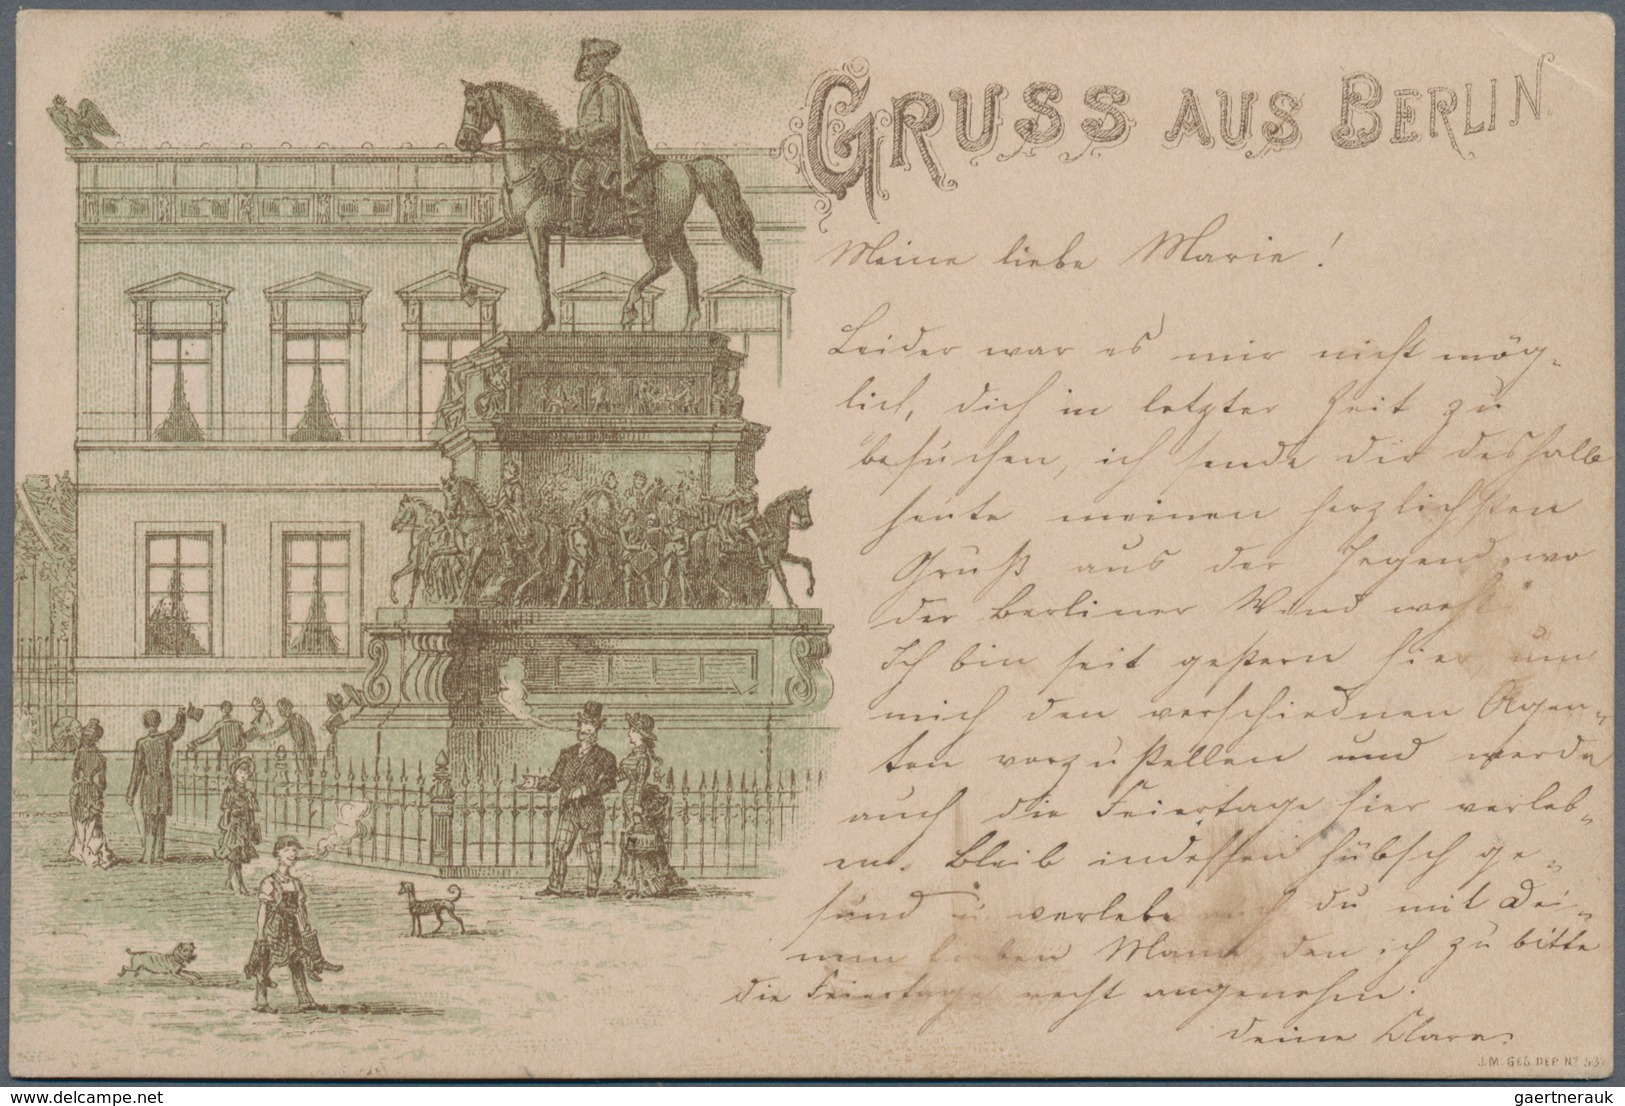 GRUSS AUS BERLIN
Meine liebe Marie!
Leider war es mir nicht mög-
lich, dich in letzter Zeit zu
besuchen, ich sende dir deshalb
heute meinen herzlichsten
Gruß aus der Gegend, wo
der Berliner Wind weht
Ich bin seit gestern hier um
mich den verschiednen Agen-
ten vorzustellen und werde
auch die Feiertage hier verleb-
en. Bleib indessen hübsch ge-
sund u verlebe du mit Dei-
nen lieben den ich zu bitte
die Feiertage recht angenehm.
deine Klara.
J.M. GES. DEP. No 53
gaertnerauk